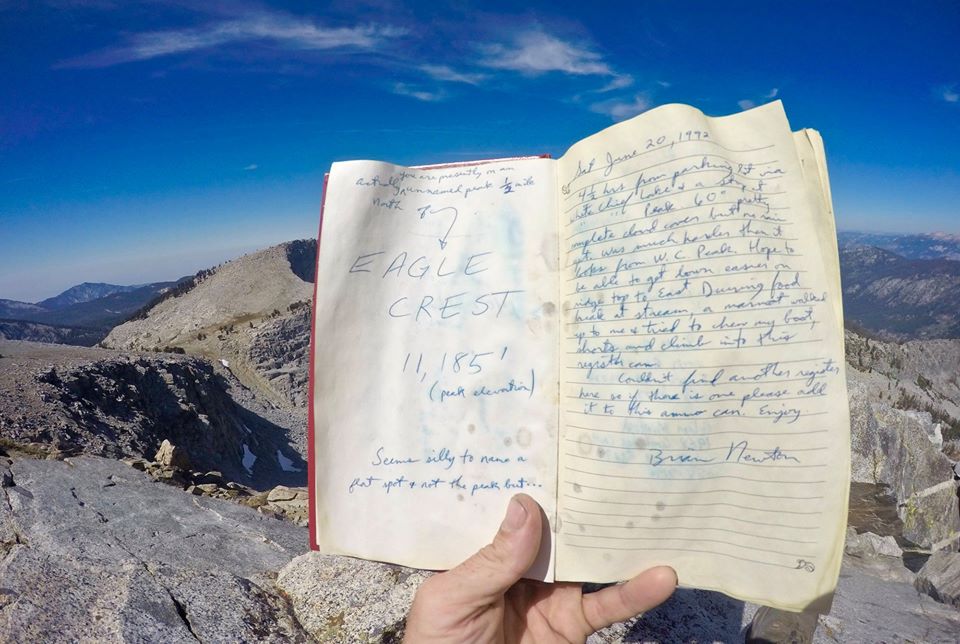 you are presently on an
Actually unnamed peak 1/2 mile
North of
EAGLE
CREST
11,185'
(peak elevation)
Seems silly to name a
flat spot & not the peak but...
Sat June 20, 1992
4½ hrs from parking lot via
White Chief Lake & a stop at
" " Peak 60° pretty
complete cloud cover but no rain
yet. Was much harder than it
looks from W.C. Peak. Hope to
be able to get down easier on
ridge top to East. During food
break at stream, a marmot walked
up to me & tried to chew my boot,
shorts and climb into this
register can.
Couldn't find another register
here so if there is one please add
it to this ammo can. Enjoy
Brian Newton